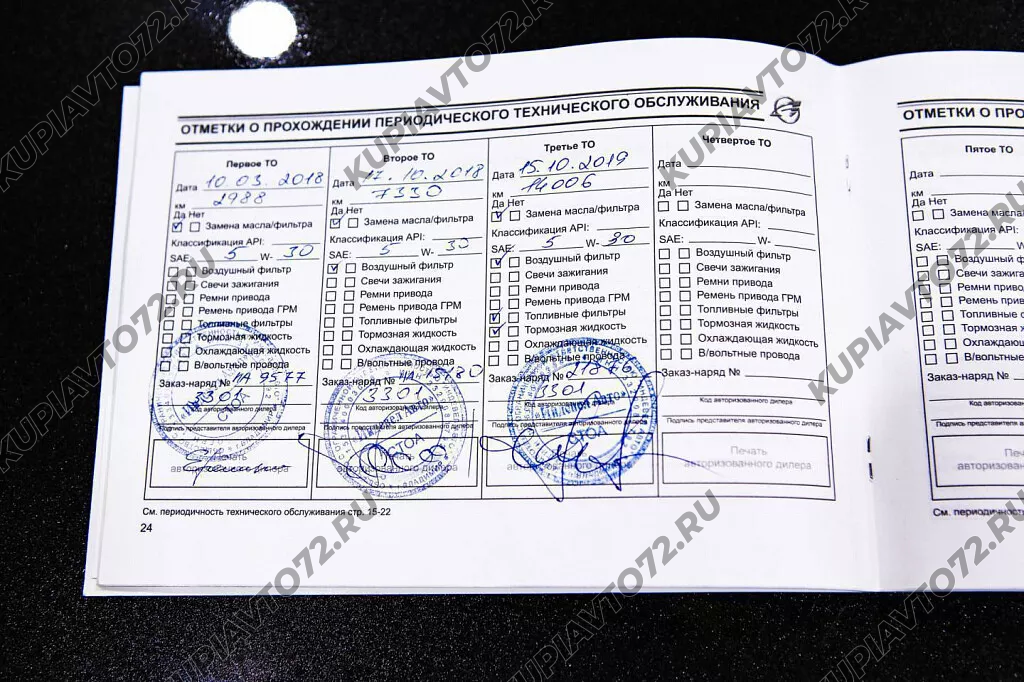 ОТМЕТКИ О ПРОХОЖДЕНИИ ПЕРИОДИЧЕСКОГО ТЕХНИЧЕСКОГО ОБСЛУЖИВАНИЯ
Первое ТО
Дата 10.03.2018
км 2988
Да Нет
Замена масла/фильтра
Классификация API:
SAE: 5 W- 30
Воздушный фильтр
Свечи зажигания
Ремни привода
Ремень привода ГРМ
Топливные фильтры
Тормозная жидкость
Охлаждающая жидкость
В/вольтные провода
Заказ-наряд № НА 9577
3301
Код авторизованного дилера
Подпись представителя авторизованного дилера
Второе ТО
Дата 17.10.2018
км 7330
Да Нет
Замена масла/фильтра
Классификация API:
SAE: 5 W- 30
Воздушный фильтр
Свечи зажигания
Ремни привода
Ремень привода ГРМ
Топливные фильтры
Тормозная жидкость
Охлаждающая жидкость
В/вольтные провода
Заказ-наряд № НА 15180
3301
Подпись представителя авторизованного дилера
«Пилот Авто»
СТОА
Третье ТО
Дата 15.10.2019
км 14006
Да Нет
Замена масла/фильтра
Классификация API:
SAE: 5 W- 30
Воздушный фильтр
Свечи зажигания
Ремни привода
Ремень привода ГРМ
Топливные фильтры
Тормозная жидкость
Охлаждающая жидкость
В/вольтные провода
Заказ-наряд № 21876
3301
Подпись представителя авторизованного дилера
СТОА
авторизованного дилера
Четвертое ТО
Дата
км
Да Нет
Замена масла/фильтра
Классификация API:
SAE: W-
Воздушный фильтр
Свечи зажигания
Ремни привода
Ремень привода ГРМ
Топливные фильтры
Тормозная жидкость
Охлаждающая жидкость
В/вольтные провода
Заказ-наряд №
Код авторизованного дилера
Подпись представителя авторизованного дилера
Печать
авторизованного дилера
См. периодичность технического обслуживания стр. 15-22
24
ОТМЕТКИ О ПРО
Пятое ТО
Дата
км
Да Нет
Замена масла
Классификация API:
SAE: W-
Воздушный фильт
Свечи зажигания
Ремни привод
Ремень приво
Топливные ф
Тормозная жи
Охлаждающа
В/вольтные
Заказ-наряд №
Код авторизованн
Подпись представителя авторизов
Печ
авторизованно
См. периодичность
KUPIAVTO72.RU